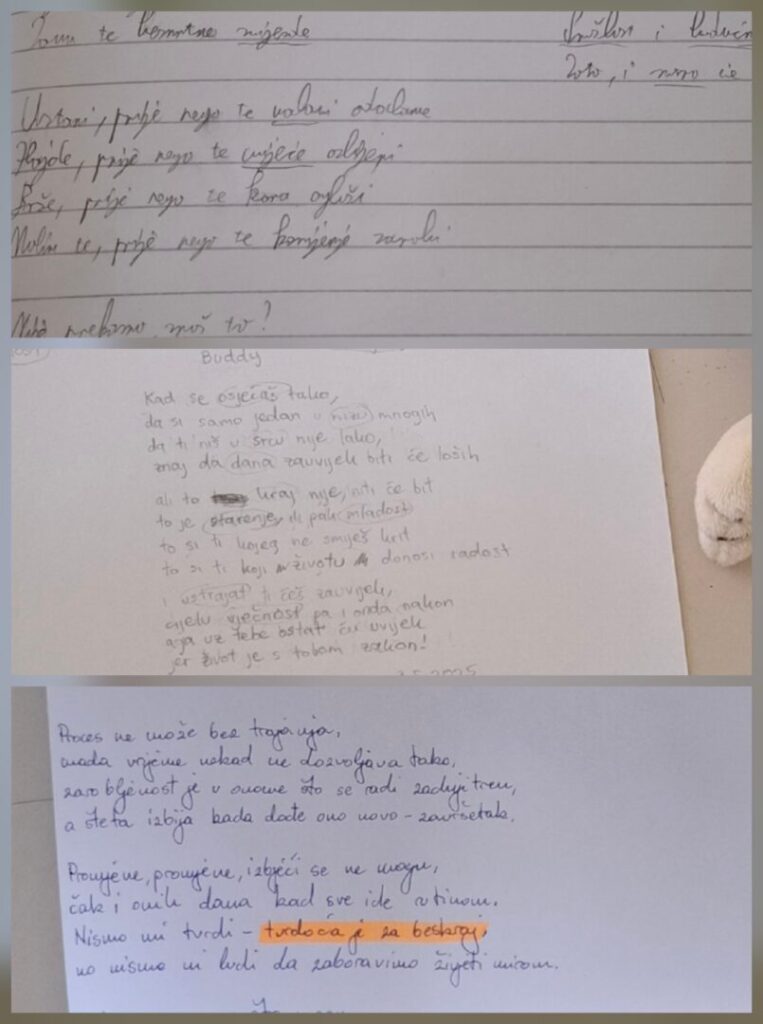 te
Ustani, prije nego te valovi
prije nego te cvijeće oslijepi
Brže, prije nego te kora ogluši
Molim te, prije nego te korijenje zarobi
to?
Buddy
Kad se osjećaš tako,
da si samo jedan u nizu mnogih
da ti niš u srcu nije lako,
znaj da dana zauvijek biti će loših
ali to kraj nije, niti će bit
to je starenje, ili pak mladost
to si ti kojeg ne smiješ krit
to si ti koji životu donosi radost
i ustrajat ti ćeš zauvijek,
cijelu vječnost pa i onda nakon
a ja uz tebe ostat ću uvijek
jer život je s tobom zakon!
Proces ne može bez trajanja,
mada vrijeme nekad ne dozvoljava tako,
zarobljenost je u onome što se radi zadnji tren,
a šteta izbija kada dođe ono novo - završetak.
Promjene, promjene, izbjeći se ne mogu,
čak i onih dana kad sve ide rutinom.
Nismo mi tvrdi - tvrdoća je za beskraj,
no nismo ni ludi da zaboravimo živjeti mirom.